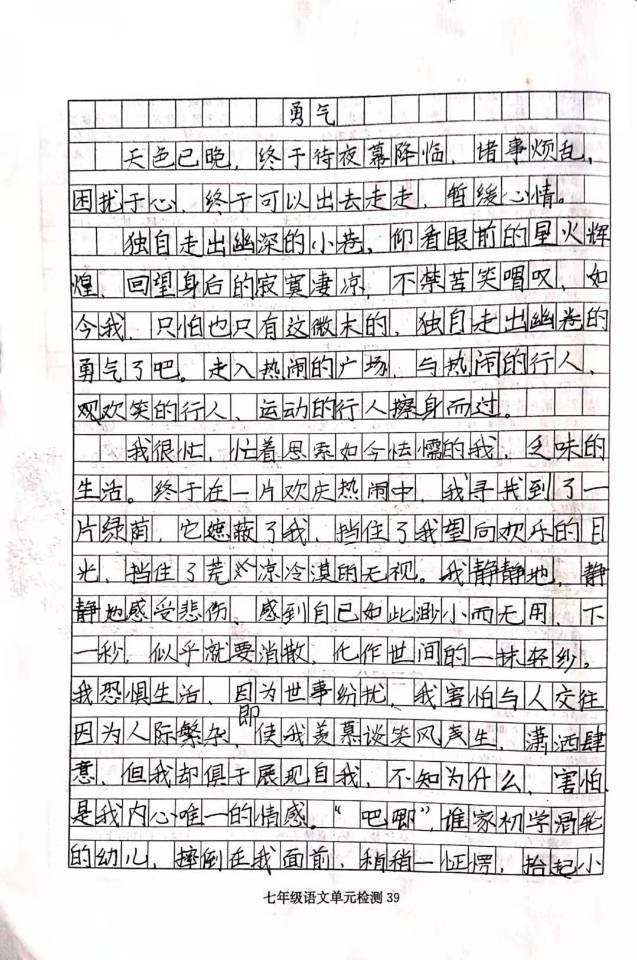 勇气
天色已晚，终于待夜幕降临，诸事烦乱，
困扰于心，终于可以出去走走，暂缓心情。
独自走出幽深的小巷，仰看眼前的星火辉
煌，回望身后的寂寞凄凉，不禁苦笑唱叹，如
今我，只怕也只有这微末的，独自走出幽巷的
勇气了吧。走入热闹的广场，与热闹的行人、
观欢笑的行人、运动的行人擦身而过。
我很忙，忙着思索如今怯懦的我，乏味的
生活。终于在一片欢庆热闹中，我寻找到了一
片绿荫，它遮蔽了我，挡住了我望向欢乐的目
光，挡住了荒凉冷漠的无视。我静静地，静
静地感受悲伤，感到自己如此渺小而无用，下
一秒，似乎就要消散，化作世间的一抹轻纱。
我恐惧生活，因为世事纷扰，我害怕与人交往
因为人际繁杂，即使我羡慕谈笑风声生，潇洒肆
意，但我却惧于展现自我，不知为什么，害怕
是我内心唯一的情感。“吧唧”，谁家初学滑轮
的幼儿，摔倒在我面前，稍稍一怔愣，抬起小
七年级语文单元检测 39